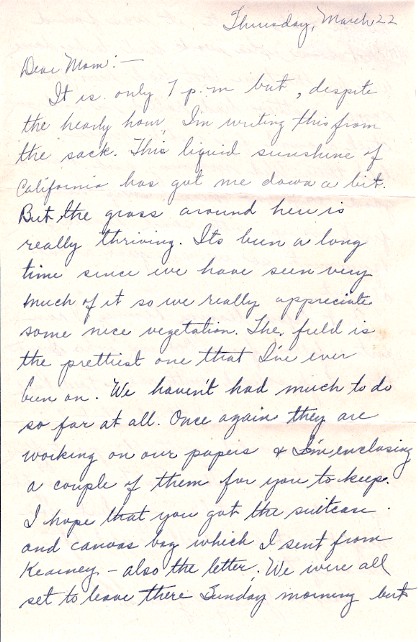 Thursday, March 22
Dear Mom: —
It is only 7 p.m but, despite
the hearly hour, I'm writing this from
the sack. This liquid sunshine of
California has got me down a bit.
But the grass around here is
really thriving. Its been a long
time since we have seen very
much of it so we really appreciate
some nice vegetation. The field is
the prettiest one that I've ever
been on. We haven't had much to do
so far at all. Once again they are
working on our papers & I'm enclosing
a couple of them for you to keep.
I hope that you got the suitcase
and canvas bag which I sent from
Kearney - also the letter. We were all
set to leave there Sunday morning but